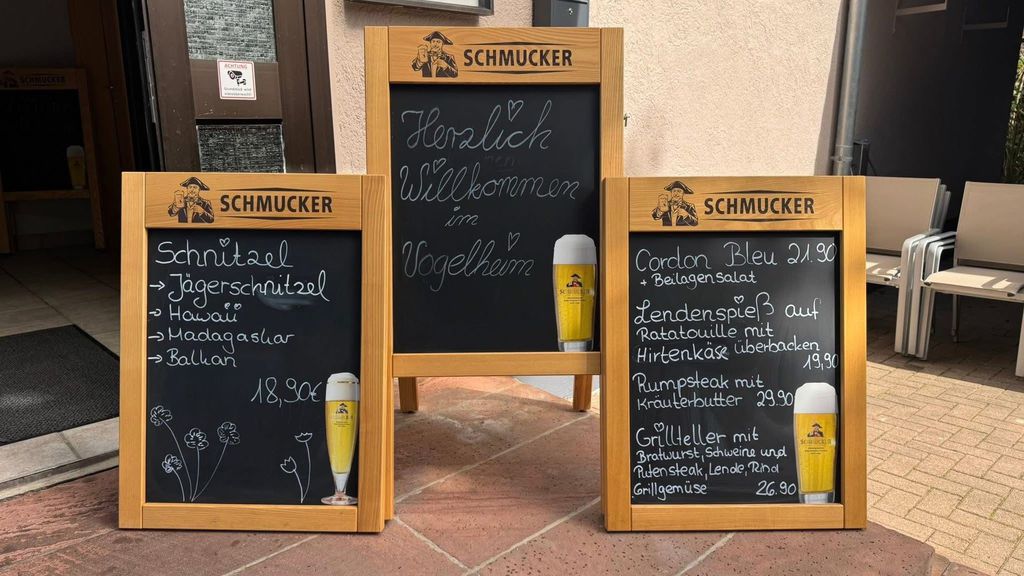 ACHTUNG
SCHMUCKER
Herzlich
Willkommen
im
Vogelheim
SCHMUCKER
SCHMUCKER
Schnitzel
→ Jägerschnitzel
→ Hawaii
→ Madagaskar
→ Balkan
18,90€
SCHMUCKER
Cordon Bleu 21.90
+ Beilagensalat
Lendenspieß auf
Ratatouille mit
Hirtenkäse überbacken
19,90
Rumpsteak mit
Kräuterbutter 29.90
Grillteller mit
Bratwurst, Schweine und
Putensteak, Lende, Rind
Grillgemüse 26.90
SCHMUCKER